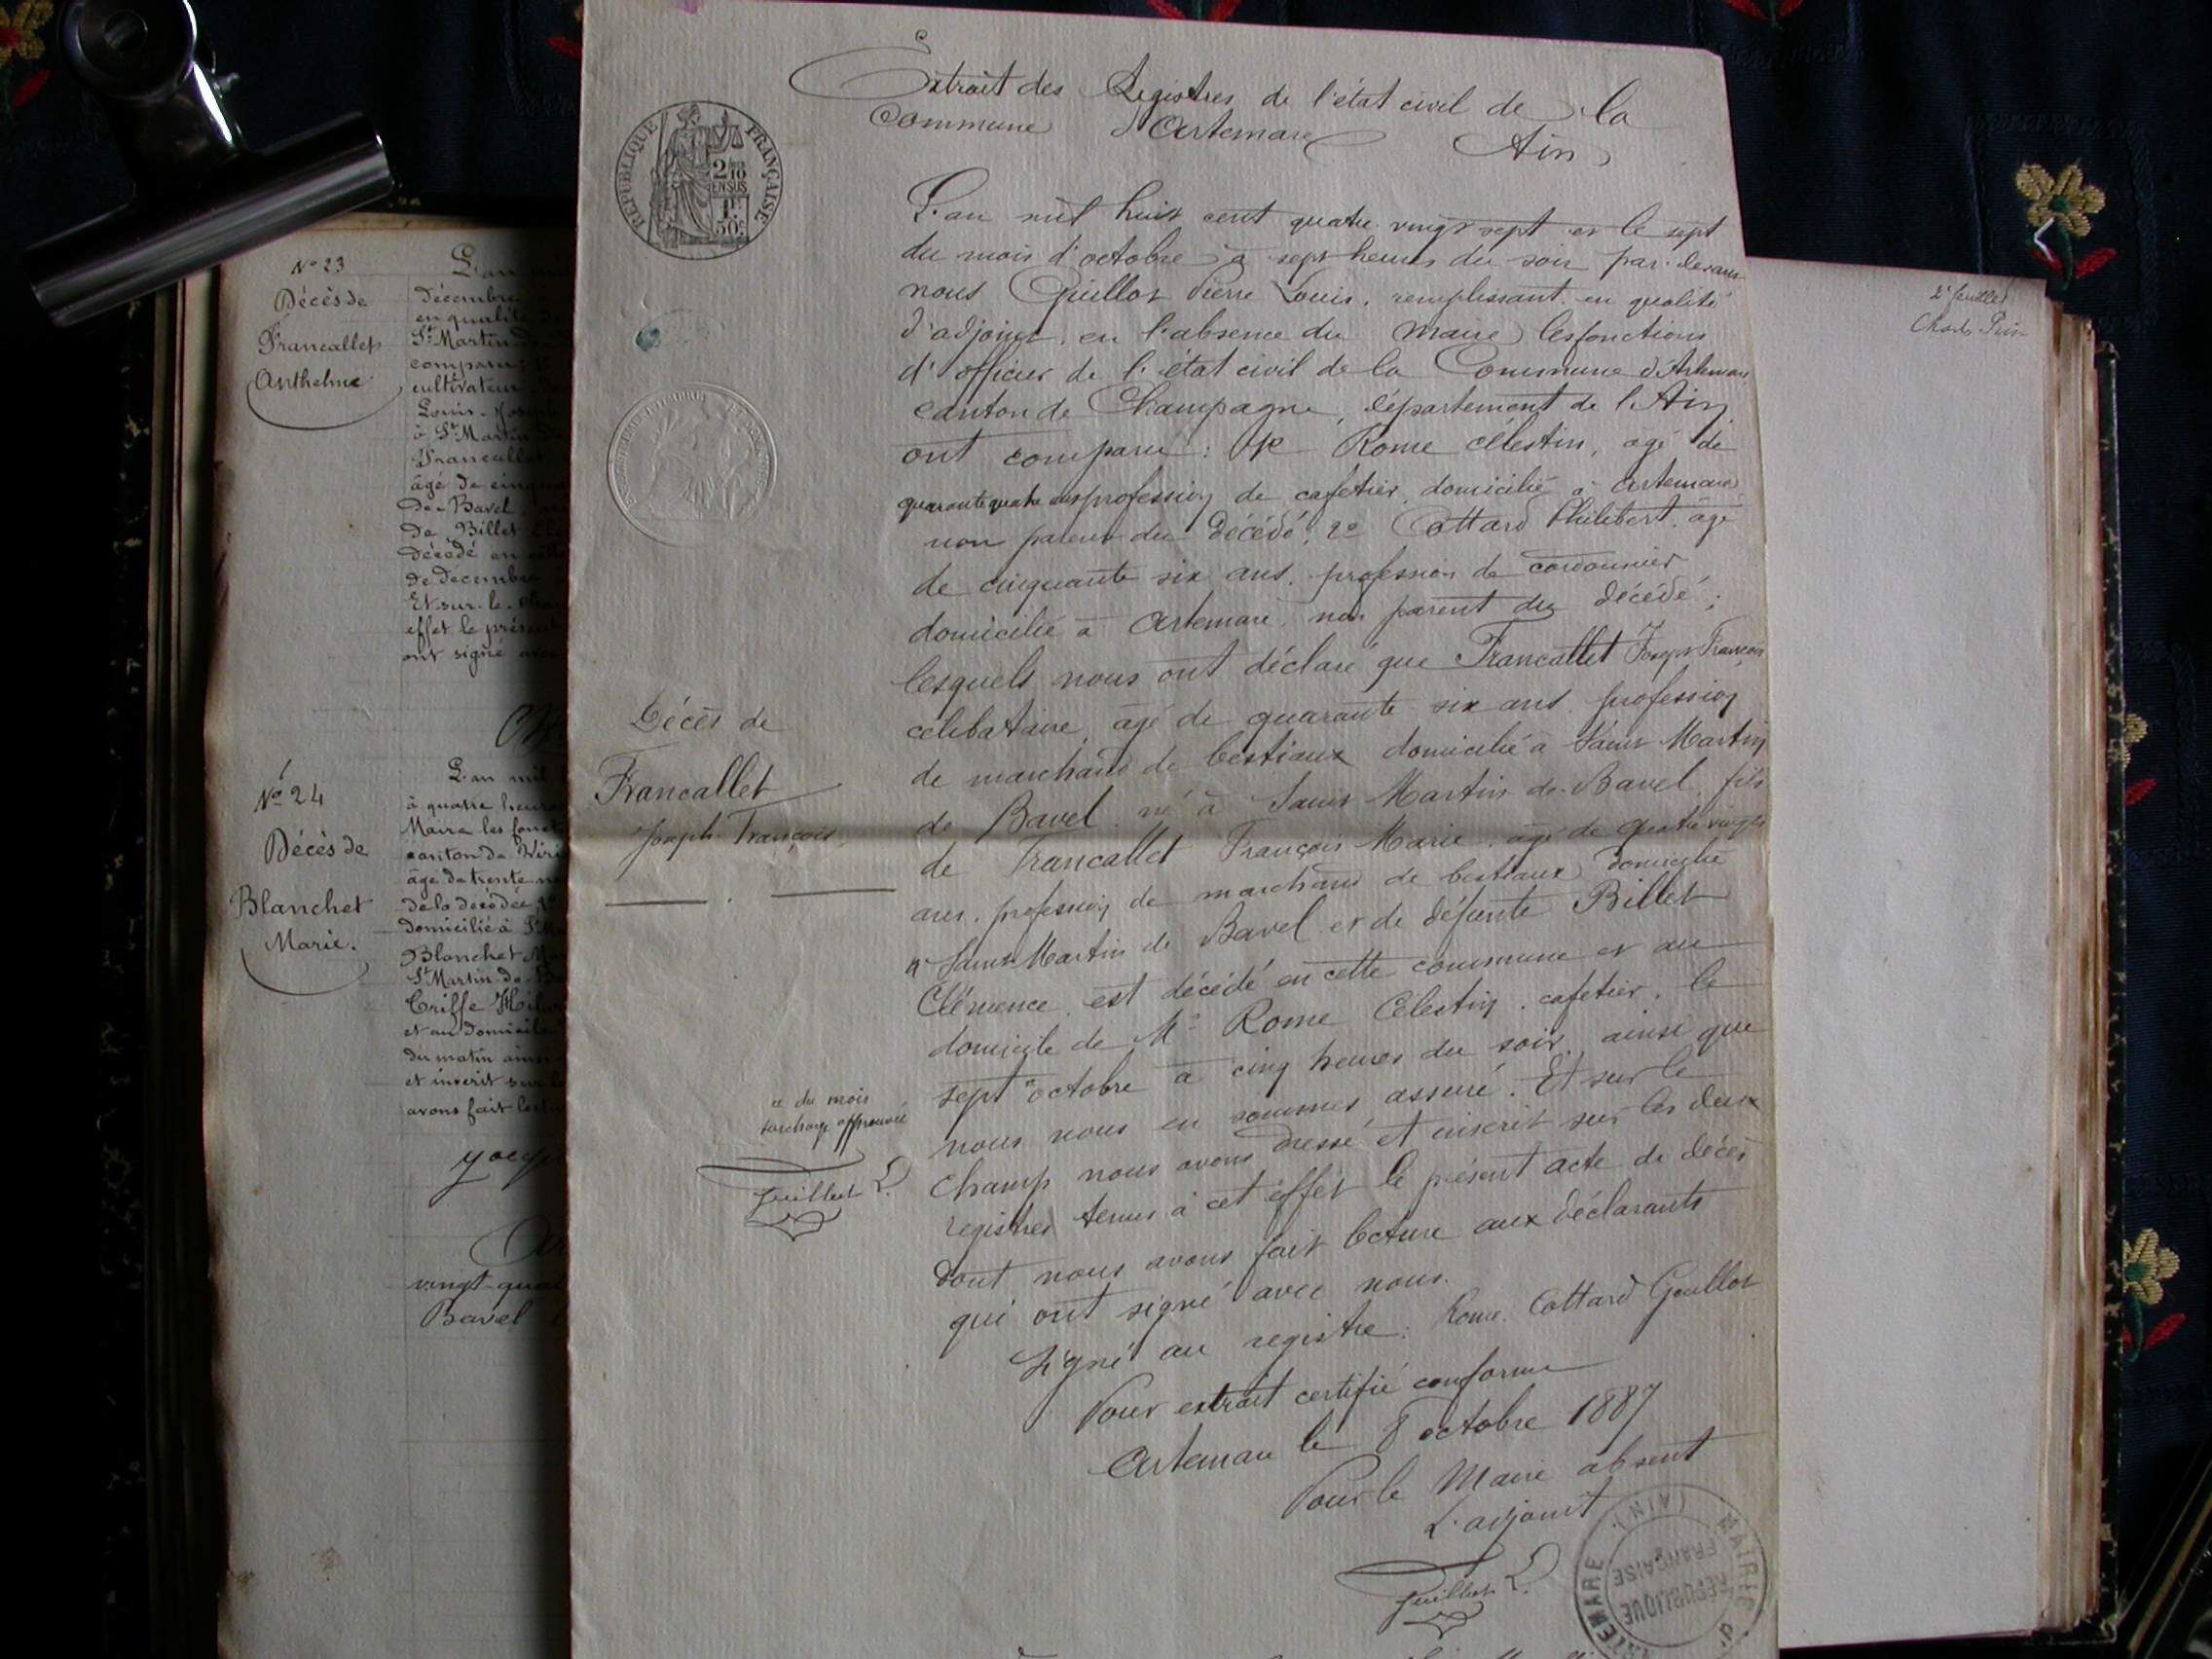 Extrait des Registres de l'état civil de la
Commune d'Artemare Ain
REPUBLIQUE FRANÇAISE
2/10
EN SUS
1F
50c
L'an mil huit cent quatre vingt sept et le sept
du mois d'octobre à sept heures du soir par devant
nous Guillot Pierre Louis, remplissant en qualité
d'adjoint, en l'absence du Maire les fonctions
d'officier de l'état civil de la Commune d'Artemare
canton de Champagne, département de l'Ain,
ont comparu : 1o Rome Célestin, âgé de
quarante quatre ans profession de cafetier, domicilié à Artemare
non parent du décédé, 2o Cottard Philibert, âgé
de cinquante six ans, profession de cordonnier
domicilié à Artemare, non parent du décédé ;
lesquels nous ont déclaré que Francallet Joseph François
célibataire, âgé de quarante six ans, profession
de marchand de bestiaux domicilié à Saint Martin
de Bavel, né à Saint Martin de Bavel, fils
de Francallet François Marie, âgé de quatre vingts
ans, profession de marchand de bestiaux domicilié
à Saint Martin de Bavel et de défunte Billet
Clémence, est décédé en cette commune et au
domicile de Mr Rome Célestin, cafetier, le
sept octobre à cinq heures du soir, ainsi que
nous nous en sommes assuré. Et sur le
champ nous avons dressé et inscrit sur les deux
registres tenus à cet effet le présent acte de décès
dont nous avons fait lecture aux déclarants
qui ont signé avec nous.
Signé au registre : Rome, Cottard Guillot
Pour extrait certifié conforme
Artemare le 8 octobre 1887
Pour le Maire absent
L'adjoint
Guillot L.
MAIRIE d'ARTEMARE (AIN)
REPUBLIQUE
FRANÇAISE
Décès de
Francallet
Joseph François
du mois
surcharge approuvée
Guillot L.
No 23
Décès de
Francallet
Anthelme
L'an mil
décembre
en qualité de
St Martin de
comparu
cultivateur
Louis - Joseph
à St Martin
Francallet
âgé de cinq
de Bavel
de Billet
décédé en
de décembre
Et sur le
effet le présent
ont signé avec
No 24
Décès de
Blanchet
Marie.
L'an mil
à quatre heures
Maire les fonct
canton de Viri
âgé de trente
de la décédée
domicilié à St
Blanchet
St Martin de
Griffe
et au domicile
du matin ainsi
et inscrit sur
avons fait lect
vingt-quat
Bavel
2e feuillet